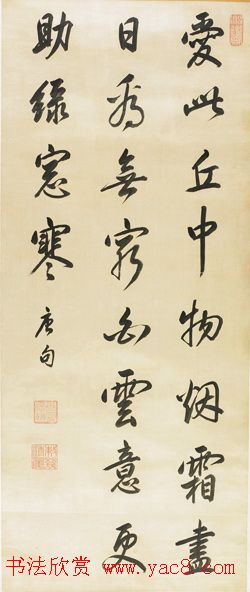 愛此丘中物烟霜盡
日看無窮白雲意更
助綠窓寒
唐句
书法欣赏 www.yac8.com